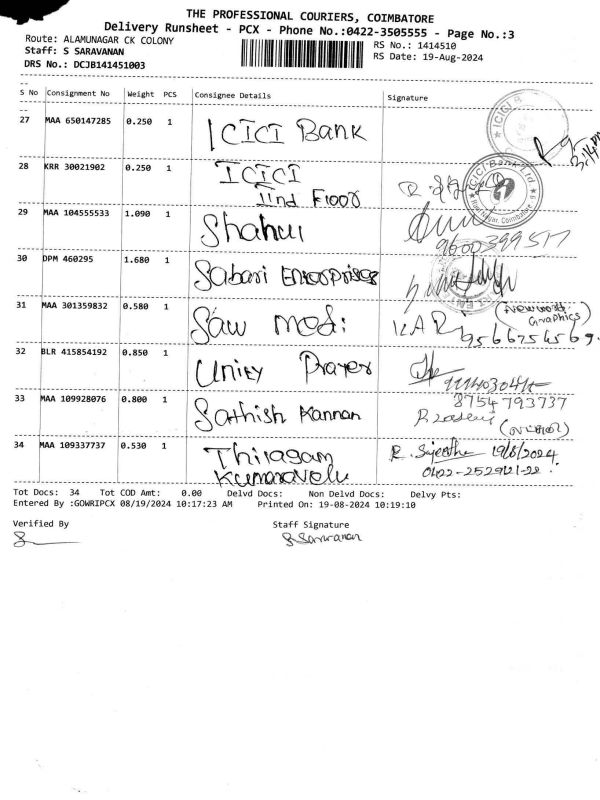 THE PROFESSIONAL COURIERS, COIMBATORE
Delivery Runsheet - PCX - Phone No.:0422-3505555 - Page No.:3
Route: ALAMUNAGAR CK COLONY
Staff: S SARAVANAN
DRS No.: DCJB141451003
RS No.: 1414510
RS Date: 19-Aug-2024
S No Consignment No Weight PCS Consignee Details Signature
27 MAA 650147285 0.250 1 ICICI Bank
28 KRR 30021902 0.250 1 ICICI
IInd Floor
ICICI Bank Ltd
29 MAA 104555533 1.090 1 Shahul
9600399517
30 DPM 460295 1.680 1 Sabari Enterprises
31 MAA 301359832 0.580 1 Saw med: (Newword Graphics)
9566754569
32 BLR 415854192 0.850 1 Unity Prayer
33 MAA 109928076 0.800 1 Sathish Kannan 8754 793737
34 MAA 109337737 0.530 1 Thiyagam Kumaravelu R. Sujentha 19/8/2024
0422-252921-22
Tot Docs: 34 Tot COD Amt: 0.00 Delvd Docs: Non Delvd Docs: Delvy Pts:
Entered By :GOWRIPCX 08/19/2024 10:17:23 AM Printed On: 19-08-2024 10:19:10
Verified By Staff Signature
S Saravanan